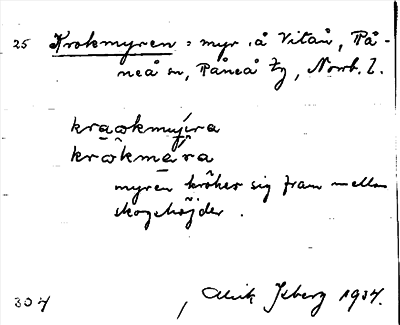 25 Krokmyren = myr å Vitån, Rå-
neå sn, Råneå tg, Norrb. l.
kraokmyira
krokmøra
myren kröker sig fram mellan
skogshöjder.
304 Ulrik Isberg 1934.